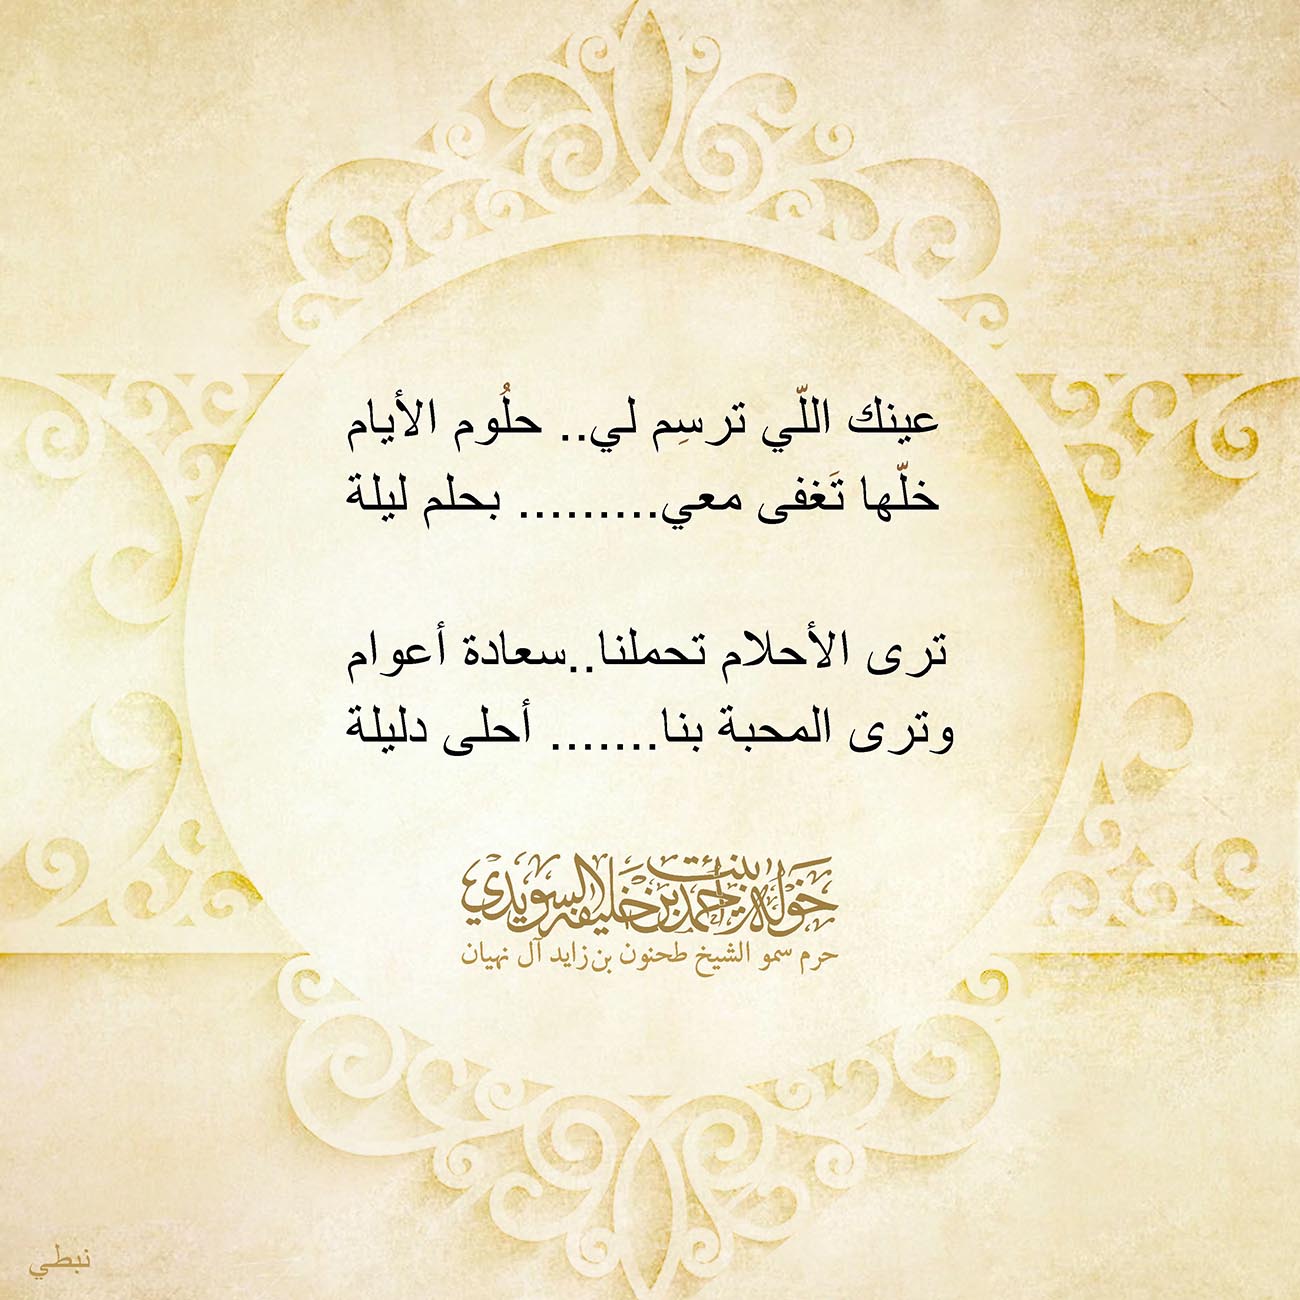 عينك اللّي ترسِم لي.. حلُوم الأيام
خلّها تَغفى معي......... بحلم ليلة
ترى الأحلام تحملنا..سعادة أعوام
وترى المحبة بنا....... أحلى دليلة
خوله بنت احمد بن خليفه السويدي
حرم سمو الشيخ طحنون بن زايد آل نهيان
نبطي